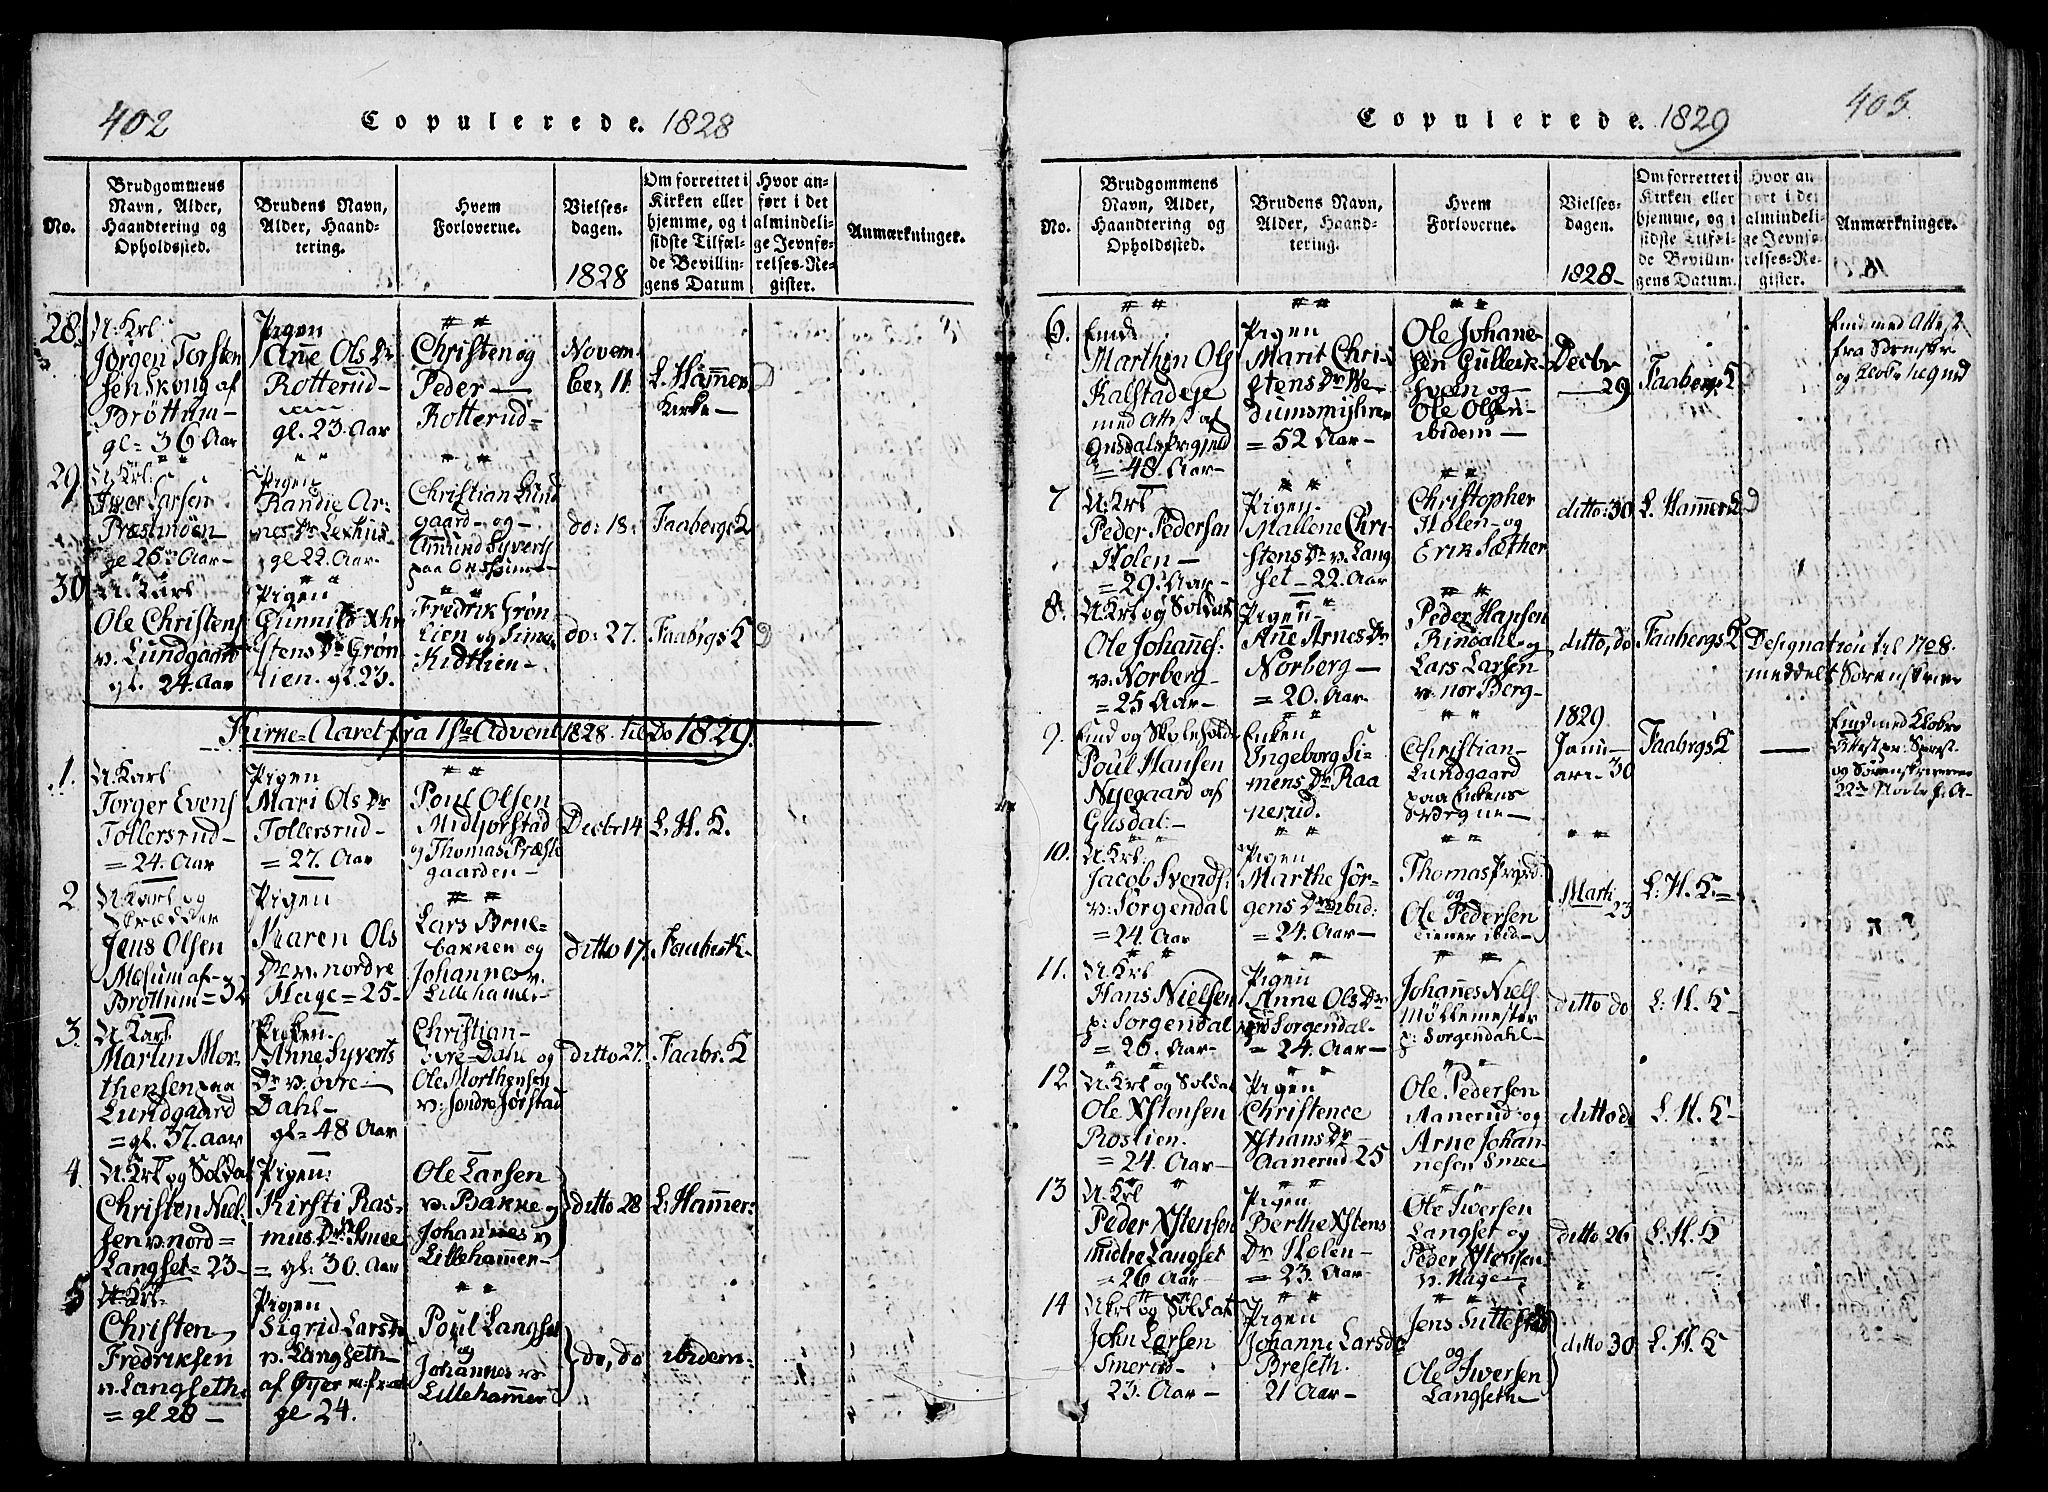 402
Copulerede. 1828
No.
Brudgommens
Navn, Alder,
Haandtering og
Opholdssted.
Brudens Navn,
Alder, Haand-
tering.
Hvem
Forloverne.
Vielses-
dagen.
1828
Om forrettet i
Kirken eller
hjemme, og i
sidste Tilfæl-
de Bevillin-
gens Datum
Hvor an-
ført i det
almindeli-
ge Jevnfø-
relses-Re-
gister.
Anmærkninger.
28.
U: Krl:
Jørgen Torsten
sen Skong af
Brøttum-
gl= 36 Aar
Pigen
Ane Ols Dr
Rotterud-
gl. 23. Aar
Christen og
Peder
Rotterud-
Novem
ber 11.
L. Hammer
Kirke-
29.
U: Krl:
Iver Larsen
gl 26 Aar-
Pigen
Randie Ar-
nes Dr
gl 22. Aar-
Christian Lund
gaard- og-
Amund Syverts
paa
do: 18.
Faabergs K
30.
U: Karl
Ole Christens
v. Lundgaard
gl. 24. Aar
Pigen
Gunnild Xhr
stens Dr Grøn
lien. gl. 23.
Fredrik Grøn
lien og Simen
Kidtlien-
do: 27.
Faabergs K
Kirke-Aaret fra 1ste Advent 1828. til Do 1829.
1.
U. Karl
Torger Evens
Tollersrud-
= 24. Aar
Pigen
Mari Ols Dr
Tollersrud-
= 27. Aar
Poul Olsen
Midtjorstad
og Thomas Præste
gaarden-
Decbr 14
L. H. K.
2.
U. Karl og
Skrædder
Jens Olsen
Mesum af-
Brøttum = 32
Pigen
Karen Ols
Dr v. nordre
Hage = 25-
Lars Brue-
bakken og
Johannes v.
Lillehamer-
ditto 17.
3.
U. Karl
Martin Mor-
thensen paa
Lundgaard
= gl. 37. aar
Pigen
Anne Syverts
Dr v. øvre
Dahl-
gl= 48 Aar
Christian-
øvre-Dahl og
Ole Morthensen
v: Søndre Jørstad
ditto 27.
Faabr. K
4.
U. Krl og Soldat
Christen Niel-
sen v: nord=
Langset= 23-
Pigen:
Kirsti Ras-
mus Dr Smee
= gl: 30. Aar
Ole Larsen
v. Bakke og
Johannes v
Lillehammer-
ditto 28
L: Hammer:
5
U. Krl.
Christen
Fredriksen
v. Langseth
= gl 28-
Pigen
Sigrid Lars Dr
v. Langseth
af Øyer
gl 24.
Poul Langset
og
Johannes v.
Lillehammer
do, do
ibidem:
Copulerede. 1829
403.
No.
Brudgommens
Navn, Alder,
Haandtering og
Opholdssted.
Brudens Navn,
Alder, Haand-
tering.
Hvem
Forloverne.
Vielses-
dagen.
1828-
Om forrettet i
Kirken eller
hjemme, og i
sidste Tilfæl-
de Bevillin-
gens Datum.
Hvor an-
ført i det
almindeli-
ge Jevnfø-
relses-Re-
gister.
Anmærkninger.
6.
Enkd
Marthin Ols
Kalstadeje
med Attest af
= 48. Aar-
Pigen
Marit Chri-
stens Dr We
dumsmyhren
= 52 Aar-
Ole Johane-
sen Gulleik-
sveen og-
Ole Olsen-
ibidem-
Decbr
29
Faabergs K
7
U. Krl
Peder Pedersen
Holen-
= 29. Aar-
Pigen-
Mallene Chri-
stens Dr v. Lang
set- 22. Aar
Christopher
Holen- og
Erik Sæther
ditto: 30
L. Hammer K
8.
U. Krl og Soldat
Ole Johanes:
v: Norberg-
= 25 Aar-
Pigen
Ane Arnes Dr
Norberg-
= 20. Aar-
Peder Hansen
Rindahl og
Lars Larsen
v. nor Berg-
ditto, do
Faabergs K
Designation til No 8.
meddelt Sorenskriver
9.
Enkd og Skoleholder
Poul Hansen
Nyegaard af
Gusdal:-
Enken
Ingeborg Si-
mens Dr Raa
nerud.
Christian-
Lundgaard
paa Enkens
Vægne-
1829
Janu-
ari- 30
Faabergs K
10.
U. Krl.
Jacob Svends:
v: Sorgendal
= 24. Aar
Pigen
Marthe Jør-
gens Dr ibid:
= 24. Aar-
Thomas
og
Ole Pedersen
Lisener ibid-
Marti
23
L: H. K.=
11.
U. Krl
Hans Nielsen
p: Sorgendal
= 26. Aar-
Pigen
Anne Ols Dr
Sorgendal-
= 24. Aar-
Johannes Niels
Møllemester
p: Sorgendahl-
ditto do
L: H. K-
12
U. Krl og Soldat
Ole Xstensen
Roslien.
= 24. Aar-
Pigen
Christence
Xstians Dr
Aanerud 25
Ole Pedersen
Aanerud og
Arne Johan-
nesen Smee
ditto do
L. H. K-
13
U. Krl
Peder Xstensen
midtre Langset
= 26 Aar-
Pigen
Berthe Xstens
Dr Holen-
= 23. Aar
Ole Iwersen
Langset og
Peder Xstensen
v. Hage
ditto 26
L. H. K
14
Ukrl og Soldat
John Larsen
Smerud-
23. Aar-
Pigen
Johanne Lars Dr
Breseth.
21 Aar-
Jens Suttestad
og
Ole Iwersen
Langseth-
ditto 30
L. H. K